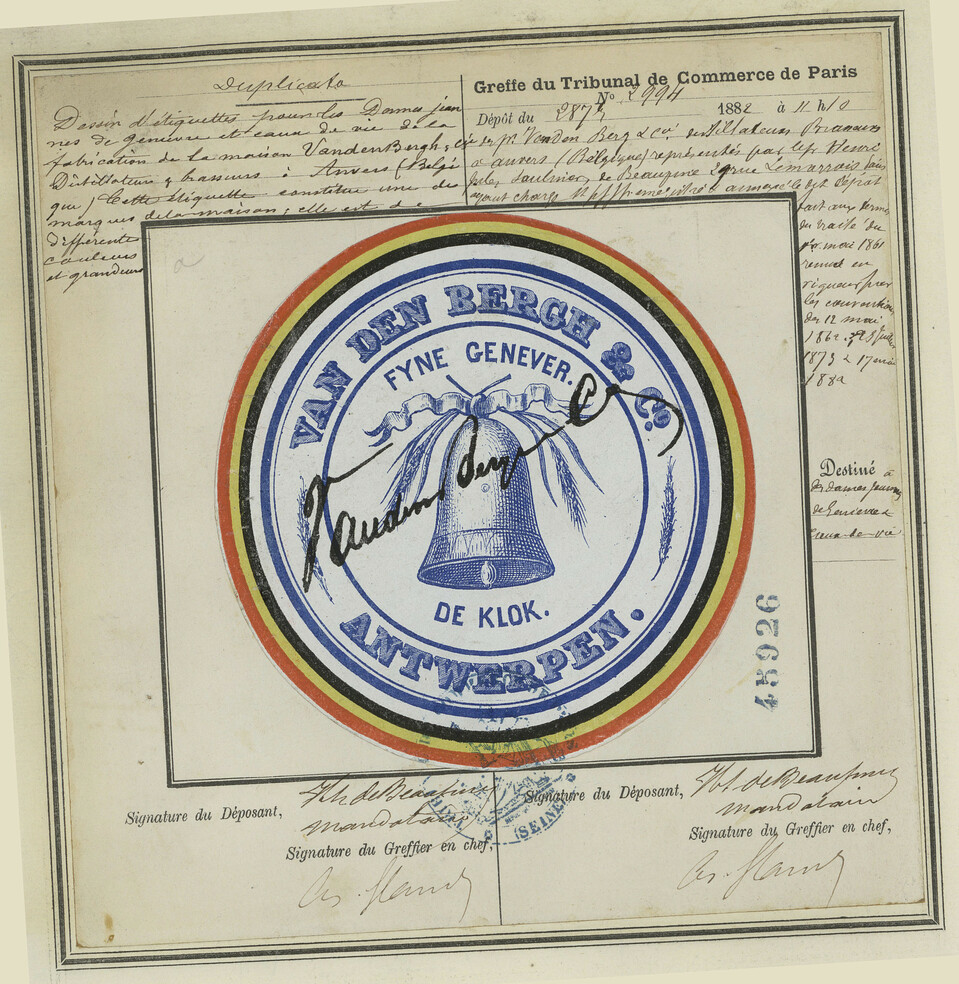 Duplicata
Dessin d'étiquettes pour les Dames jean
nes de genièvre et eaux de vie de la
fabrication de la maison Vanden Bergh & Cie
Distillateurs & brasseurs à Anvers (Belgi
que) Cette étiquette constitue une des
marques de la maison; elle est de
différentes
couleurs
et grandeurs
Greffe du Tribunal de Commerce de Paris
No 2994
Dépôt du 1882 à 11 h 10
Vanden Berg & Cie distillateurs Brasseurs
à anvers (Belgique) représentés par
Jules Saulnier de Beaupine rue Lemarrois
ayant charge
fait aux termes
du traité du
1er mai 1861
remis en
vigueur par
les conventions
des 12 mai
186
1873 & 17
188
Destiné à
des dames jeannes
de Genievre &
eaux-de-vie
VAN DEN BERGH & Co.
FYNE GENEVER.
Vanden Bergh & Co
DE KLOK.
ANTWERPEN.
45926
(SEINE)
Signature du Déposant,
de Beaupine
mandataire
Signature du Greffier en chef,
Signature du Déposant,
de Beaupine
mandataire
Signature du Greffier en chef,